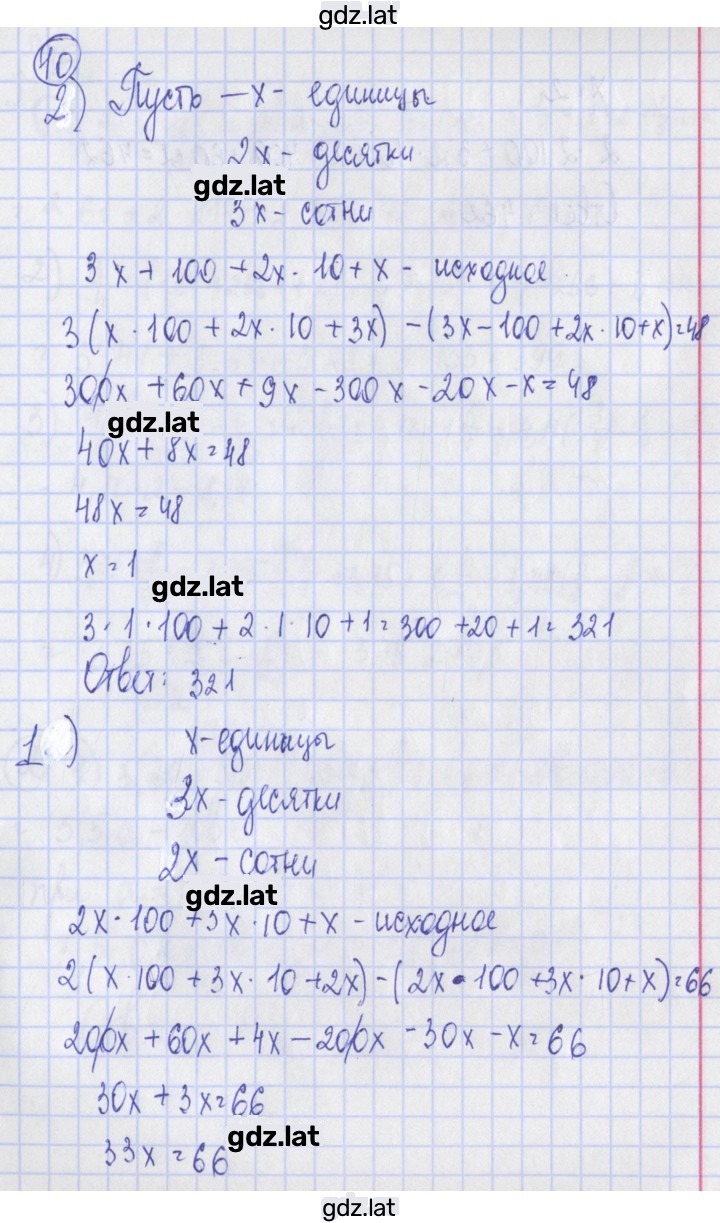 gdz.lat
40
2) Пусть – х - единицы
2х - десятки
gdz.lat
3х - сотни
3х + 100 + 2х · 10 + х - исходное
3(х · 100 + 2х · 10 + 3х) - (3х - 100 + 2х · 10 + х) = 48
300х + 60х + 9х - 300х - 20х - х = 48
gdz.lat
40х + 8х = 48
48х = 48
х = 1
gdz.lat
3 · 1 · 100 + 2 · 1 · 10 + 1 = 300 + 20 + 1 = 321
Ответ: 321
1) х - единицы
3х - десятки
2х - сотни
gdz.lat
2х · 100 + 3х · 10 + х - исходное
2(х · 100 + 3х · 10 + 2х) - (2х · 100 + 3х · 10 + х) = 66
200х + 60х + 4х - 200х - 30х - х = 66
30х + 3х = 66
gdz.lat
33х = 66
gdz.lat